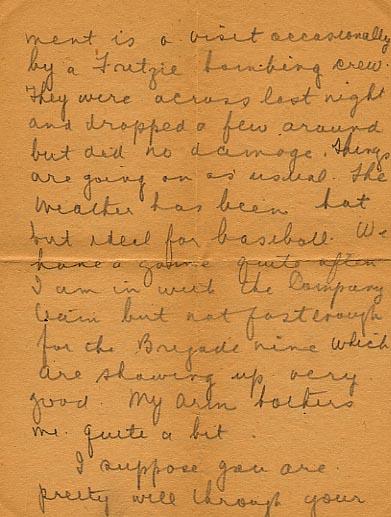 ment is a visit occasionally
by a Fritzie bombing crew.
They were across last night
and dropped a few around
but did no damage. Things
are going on as usual. The
weather has been hot
but ideal for baseball. We
have a game quite often
I am in with the Company
team but not fast enough
for the Brigade nine which
are showing up very
good. My arm bothers
me quite a bit.
I suppose you are
pretty well through your